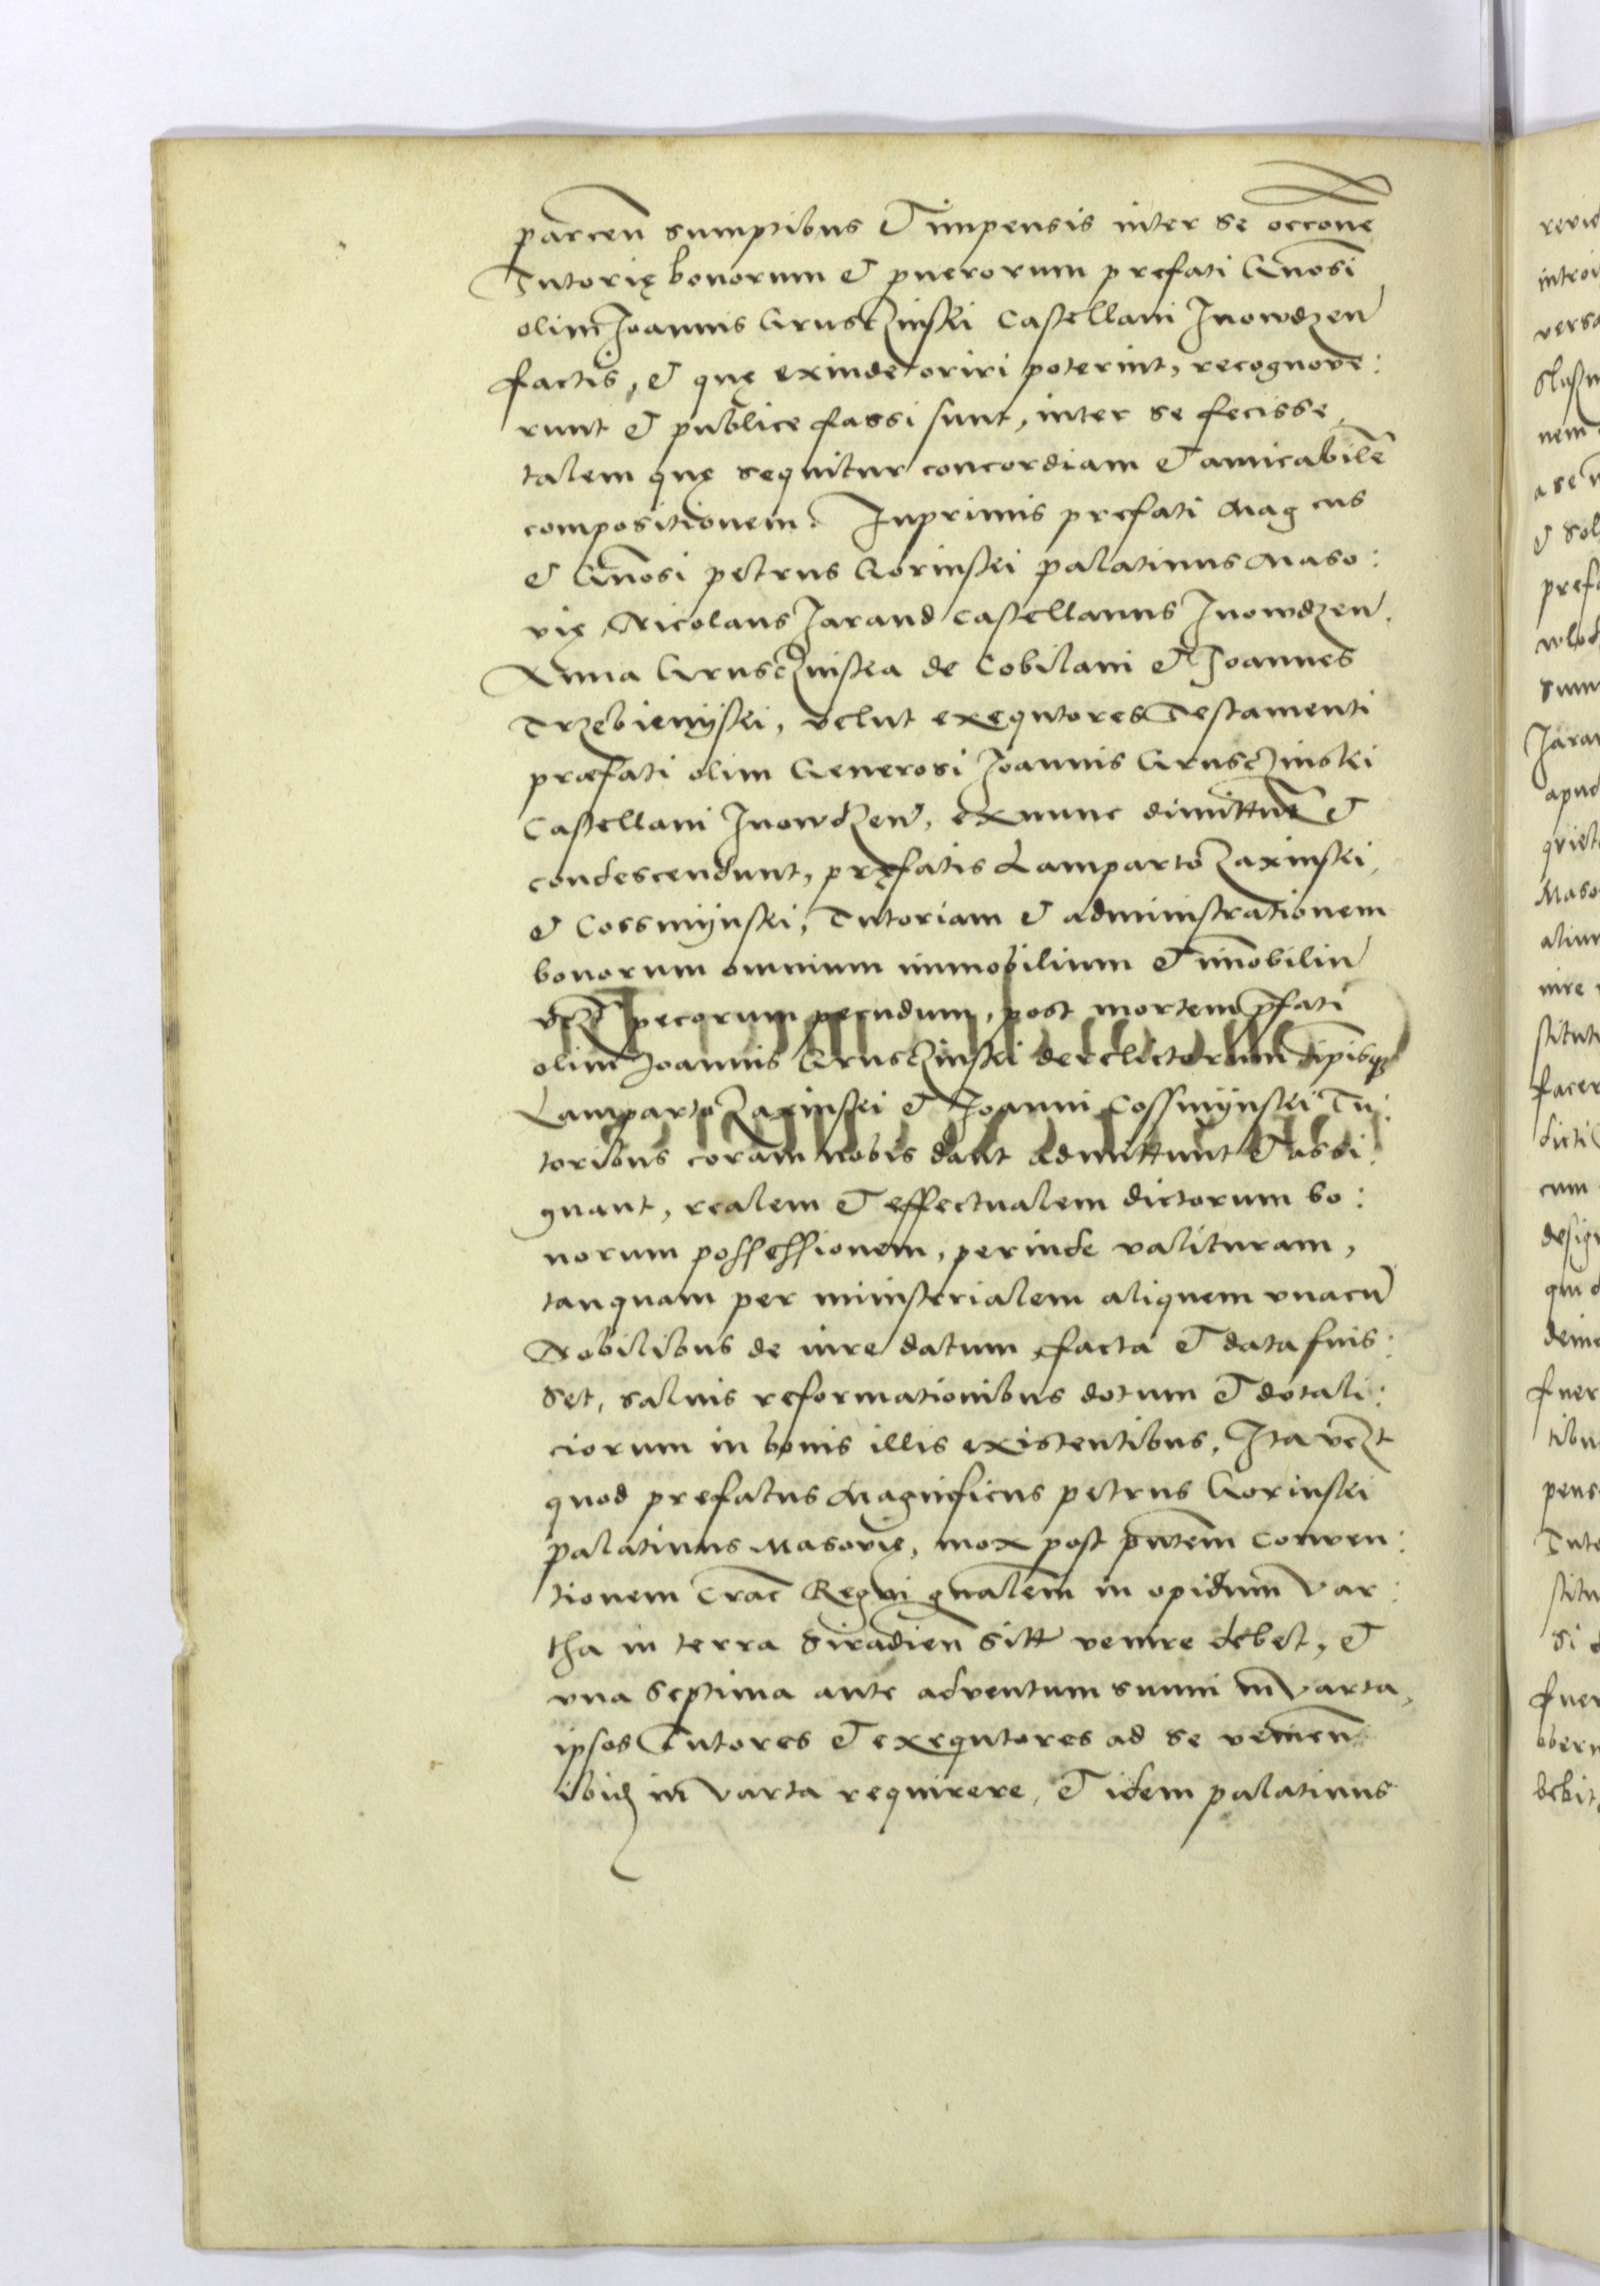 parcen sumptibus et impensis inter se occone
Tutorię bonorum et puerorum prefati Gnosi
olim Joannis Grusczinski Castellani Inowdzen
factis, et quę exinde oriri poterint, recognove:
runt et publice fassi sunt, inter se fecisse,
talem quę sequitur concordiam et amicabile
compositionem. Inprimis prefati Mag cus
et Gnosi petrus Gorinski palatinus Maso:
vię, Nicolaus Jarand Castellanus Inowdzen.
Anna Grusczinska de Cobilani et Joannes
Trzebienijski, velut exequtores Testamenti
præfati olim Generosi Joannis Grusczinski
Castellani Inowdzen, ex nunc dimittut et
condescendunt, pręfatis Lamparto Zaxinski,
et Cossmijnski, Tutoriam et administrationem
bonorum omnium immobilium et imobiliu
pecorum pecudum, post mortem pfati
olim Joannis Grusczinski derelictorum ipisq
Lamparto Zaxinski et Joanni Cossmijnski Tu:
toribus coram nobis dant admittunt et assi:
gnant, realem et effectualem dictorum bo:
norum possessionem, perinde valituram,
tanquam per ministerialem aliquem vnacu
Nobilibus de iure datum, facta et data fuis:
set, salvis reformationibus dotum et dotali:
ciorum in bonis illis existentibus, Ita vczt
quod prefatus Magnificus petrus Gorinski
palatinus Masovię, mox post pntem Conven:
tionem Crac Regni gnalem in opidum Var:
tha in terra Siradien sitt venire debet, et
vna septima ante adventum suum in Varta,
ipsos Tutores et exequtores ad se venien
ibid in Varta requirere, et idem palatinus